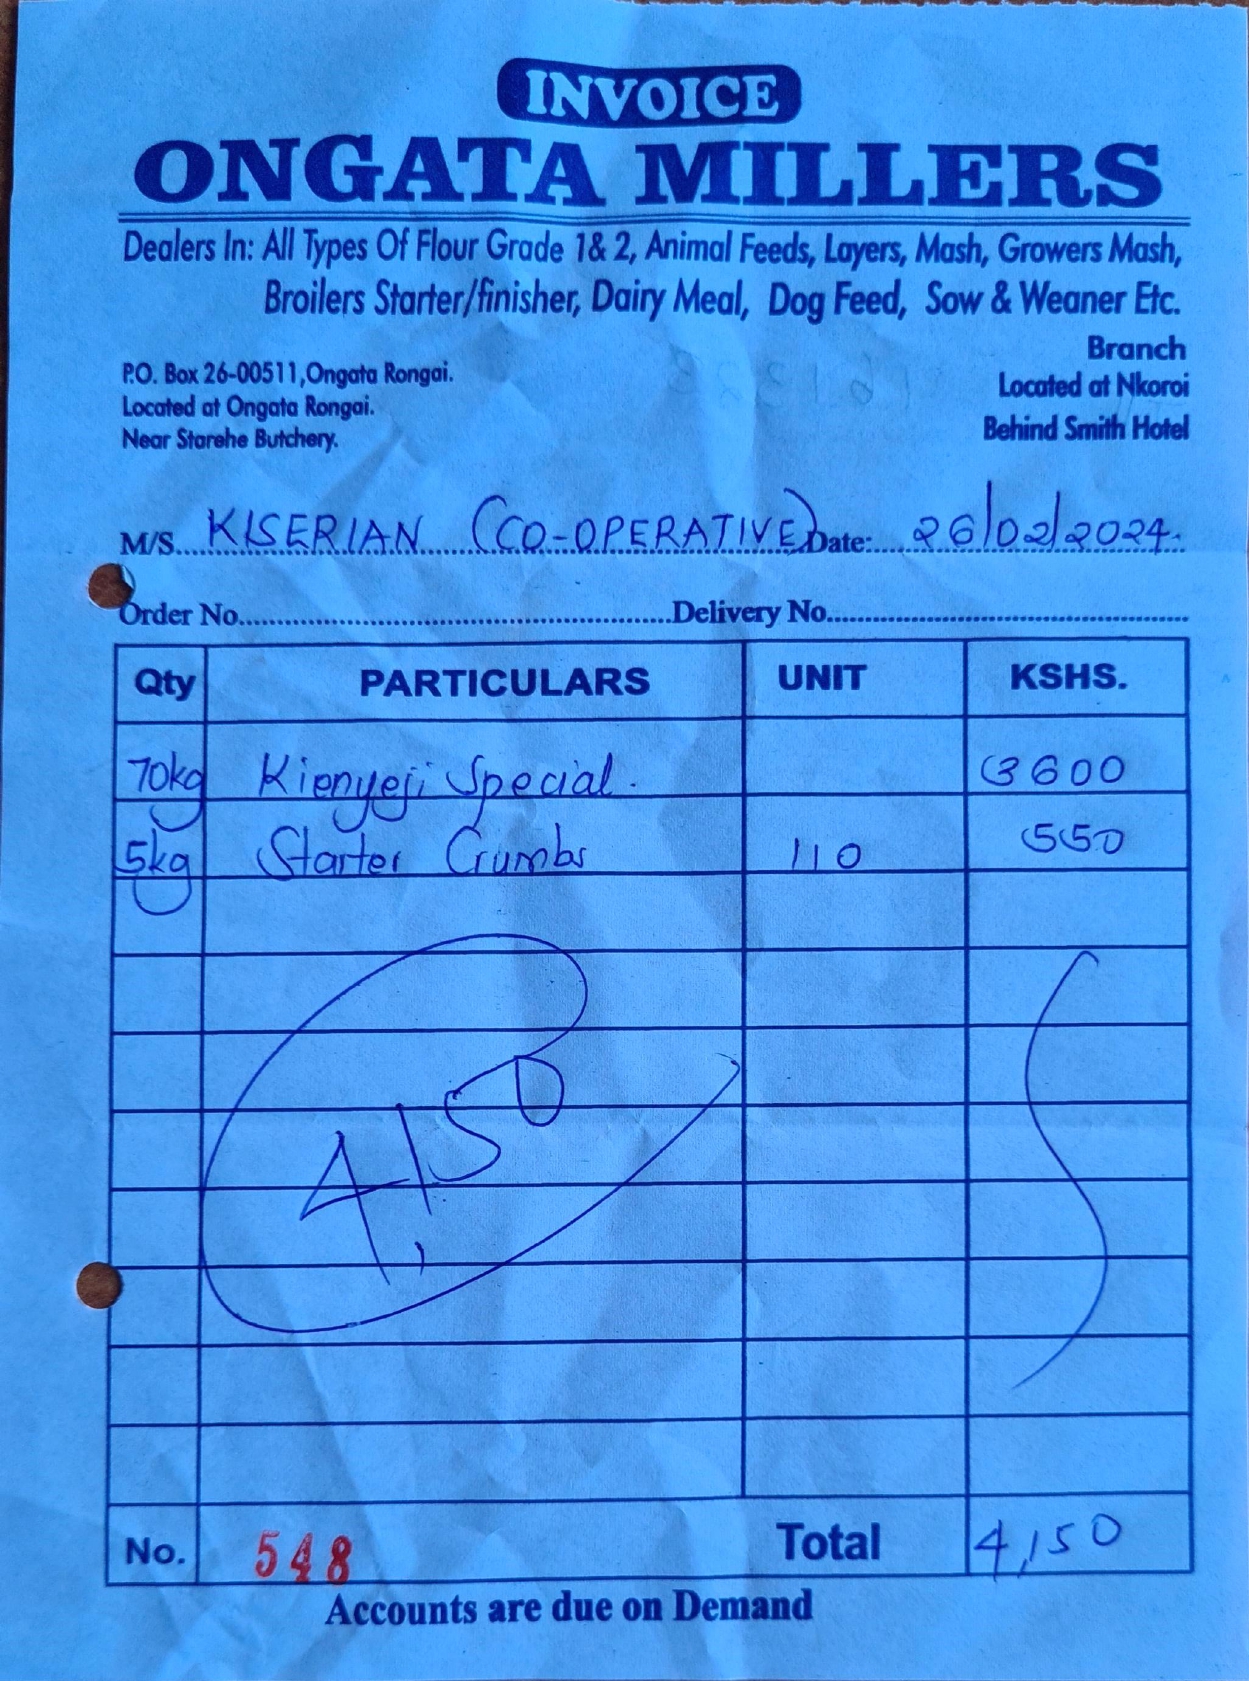 INVOICE
ONGATA MILLERS
Dealers In: All Types Of Flour Grade 1& 2, Animal Feeds, Layers, Mash, Growers Mash,
Broilers Starter/finisher, Dairy Meal, Dog Feed, Sow & Weaner Etc.
P.O. Box 26-00511,Ongata Rongai.
Located at Ongata Rongai.
Near Starehe Butchery.
Branch
Located at Nkoroi
Behind Smith Hotel
M/S. KISERIAN (CO-OPERATIVE) Date: 26/02/2024.
Order No. Delivery No.
Qty PARTICULARS UNIT KSHS.
70kg Kienyeji Special. 3600
5kg Starter Crumbs 110 550
4,150
No. 548 Total 4,150
Accounts are due on Demand